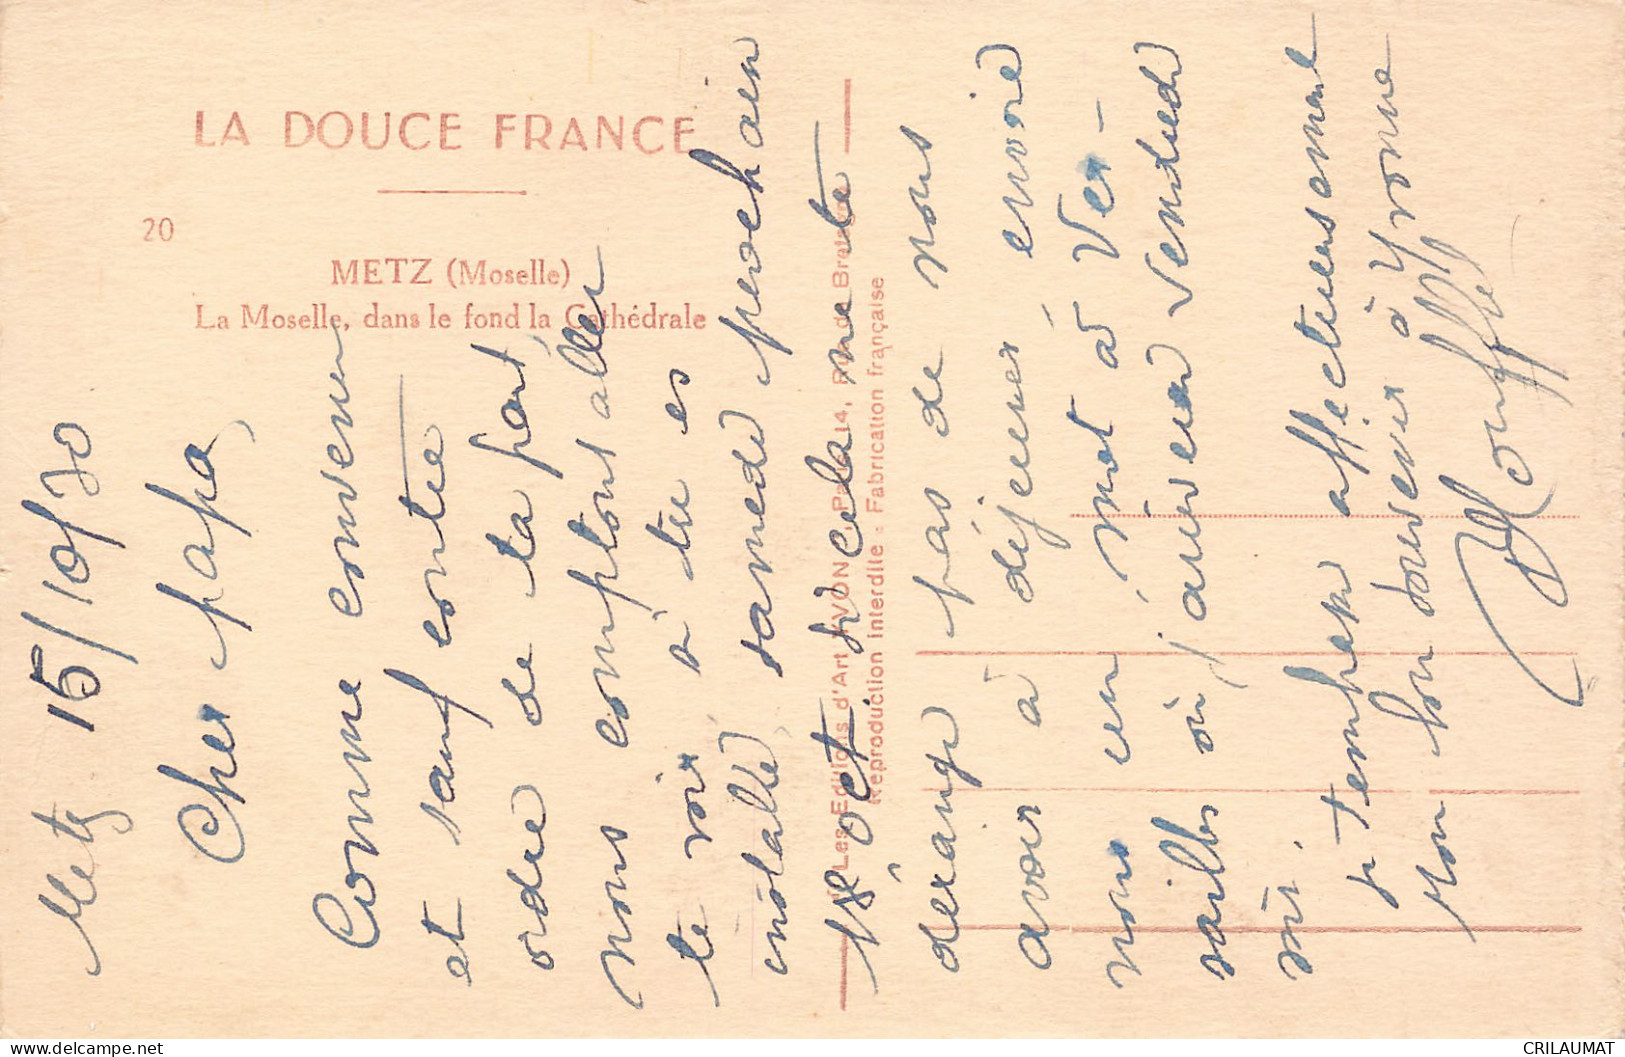 LA DOUCE FRANCE
20
METZ (Moselle)
La Moselle, dans le fond la Cathédrale
Les Editions d'Art YVON, Paris-14, Rue de Bretagne
Reproduction interdite - Fabrication française
Metz 15/10/30
Cher papa,
Comme convenu
et sauf contre
ordre de ta part,
nous comptons aller
te voir, si tu es
samedi prochain
18 oct. Si cela ne te
dérange pas de nous
avoir à déjeuner, envoie
nous un mot à Ver-
sailles où j'arriverai Vendredi
soir.
Je t'embrasse affectueusement
Mon bon souvenir à Yvonne
CRILAUMAT
www.delcampe.net